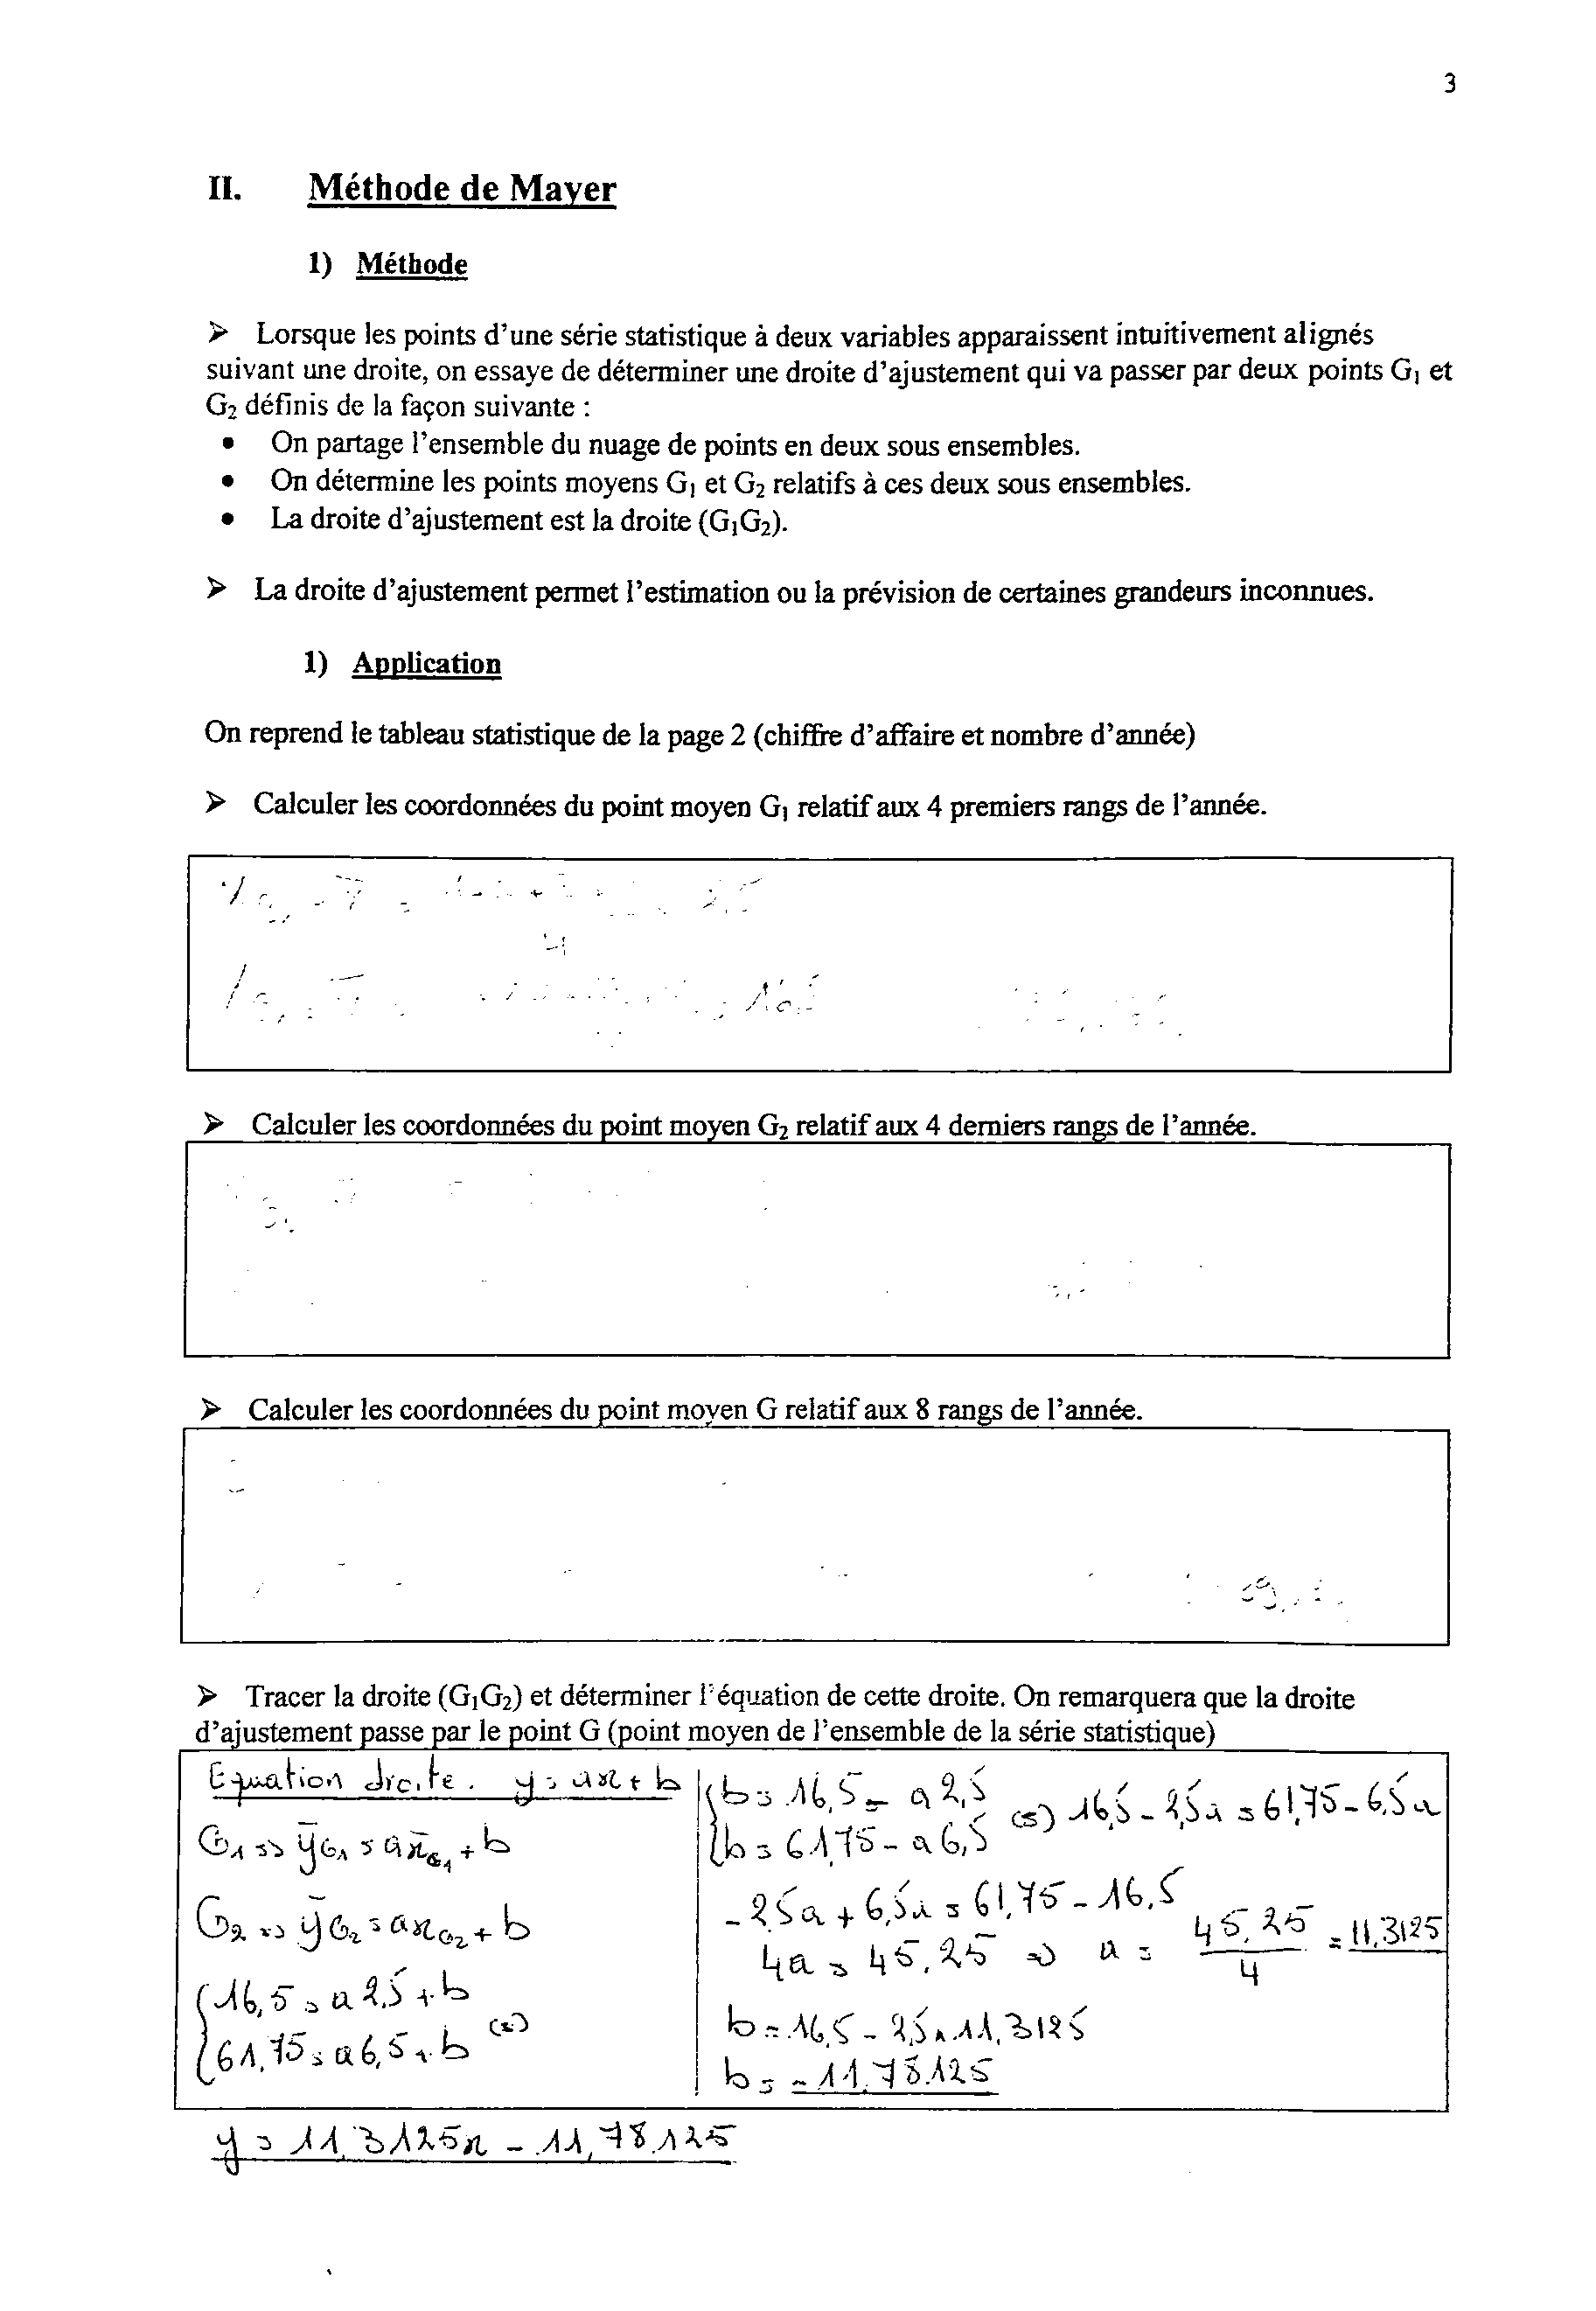 3
II. Méthode de Mayer
1) Méthode
➢ Lorsque les points d'une série statistique à deux variables apparaissent intuitivement alignés
suivant une droite, on essaye de déterminer une droite d'ajustement qui va passer par deux points G₁ et
G₂ définis de la façon suivante :
• On partage l'ensemble du nuage de points en deux sous ensembles.
• On détermine les points moyens G₁ et G₂ relatifs à ces deux sous ensembles.
• La droite d'ajustement est la droite (G₁G₂).
➢ La droite d'ajustement permet l'estimation ou la prévision de certaines grandeurs inconnues.
1) Application
On reprend le tableau statistique de la page 2 (chiffre d'affaire et nombre d'année)
➢ Calculer les coordonnées du point moyen G₁ relatif aux 4 premiers rangs de l'année.
4
➢ Calculer les coordonnées du point moyen G₂ relatif aux 4 derniers rangs de l'année.
➢ Calculer les coordonnées du point moyen G relatif aux 8 rangs de l'année.
➢ Tracer la droite (G₁G₂) et déterminer l'équation de cette droite. On remarquera que la droite
d'ajustement passe par le point G (point moyen de l'ensemble de la série statistique)
Equation droite. y = ax + b
G₁ => ȳG₁ = a x̄G₁ + b
G₂ => ȳG₂ = a xG₂ + b
{ 16,5 = a 2,5 + b
{ 61,75 = a 6,5 + b (=)
{ b = 16,5 - a 2,5
{ b = 61,75 - a 6,5 (=) 16,5 - 2,5a = 61,75 - 6,5a
- 2,5a + 6,5a = 61,75 - 16,5
4a = 45,25 => a = 45,25 / 4 = 11,3125
b = 16,5 - 2,5 x 11,3125
b = - 11,78125
y = 11,3125x - 11,78125